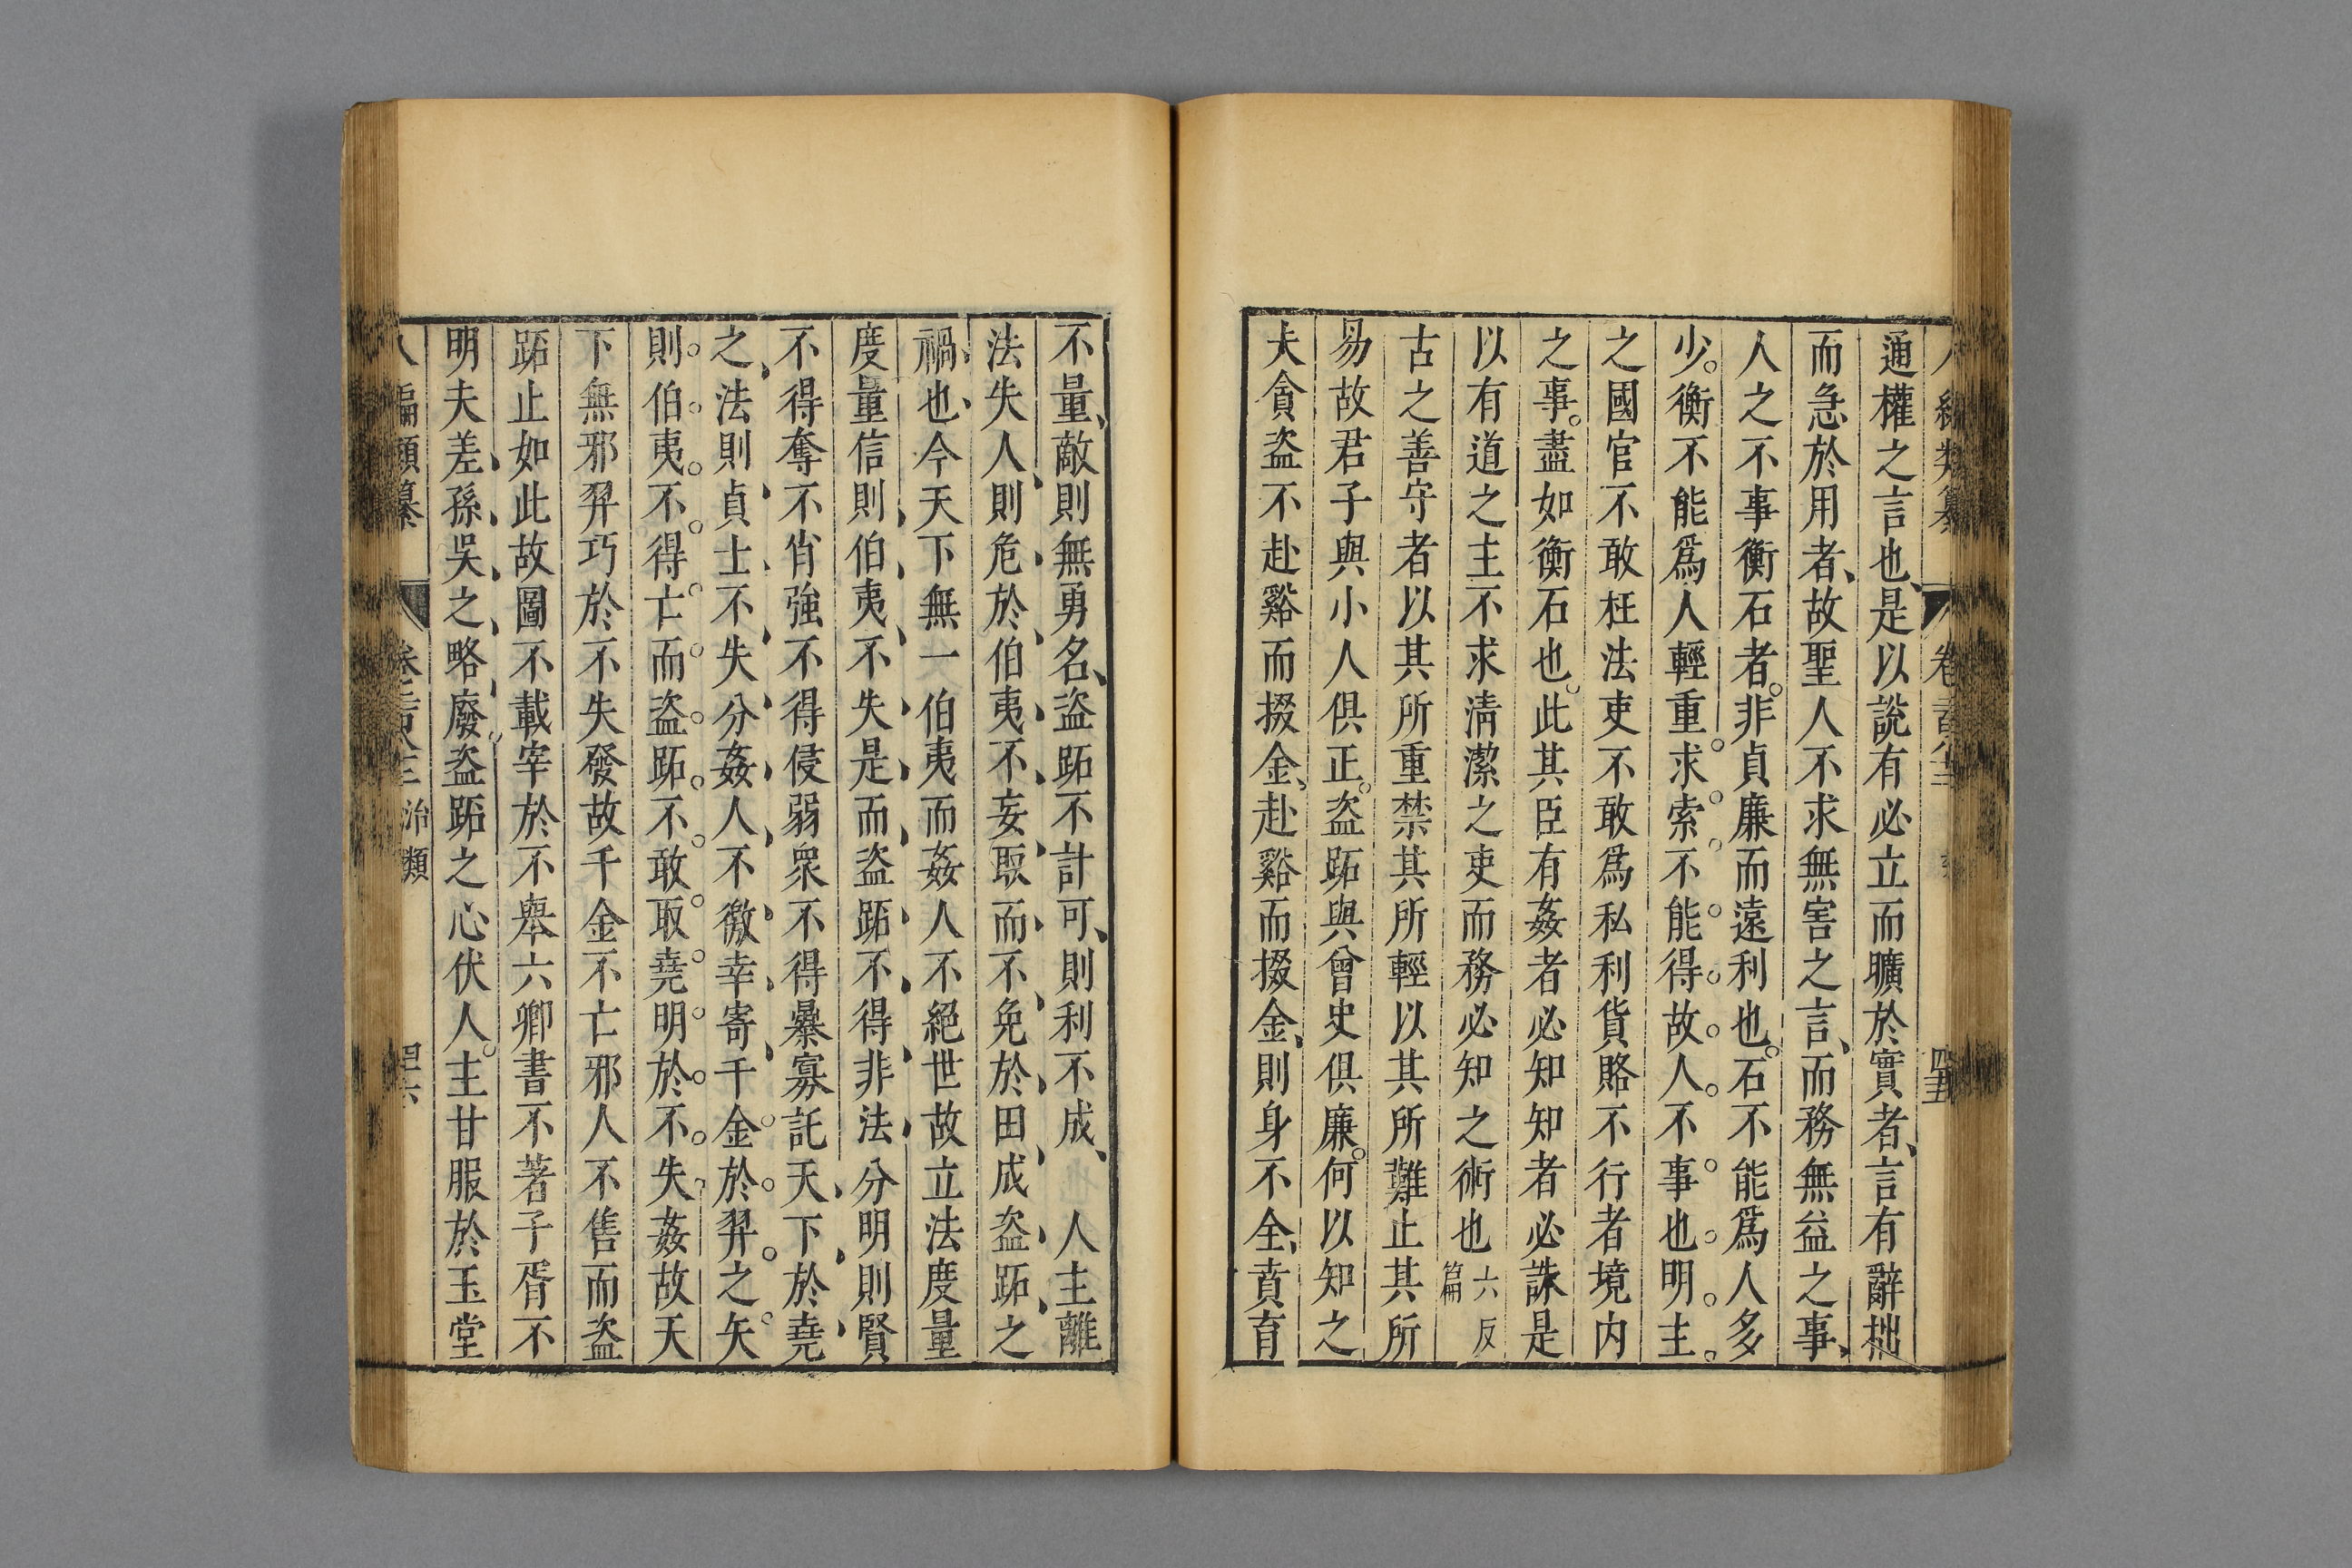 通權之言也是以說有必立而曠於實者言有辭拙
而急於用者故聖人不求無害之言而務無益之事
人之不事衡石者非貞廉而遠利也石不能爲人多
少衡不能爲人輕重求索不能得故人不事也明主
之國官不敢枉法吏不敢爲私利貨賂不行者境内
之事盡如衡石也此其臣有姦者必知知者必誅是
以有道之主不求淸潔之吏而務必知之術也六反篇
古之善守者以其所重禁其所輕以其所難止其所
易故君子與小人俱正盜跖與曾史俱廉何以知之
夫貪盜不赴谿而掇金赴谿而掇金則身不全賁育
不量敵則無勇名盜跖不計可則利不成也人主離
法失人則危於伯夷不妄取而不免於田成盜跖之
禍也今天下無一伯夷而姦人不絕世故立法度量
度量信則伯夷不失是而盜跖不得非法分明則賢
不得奪不肖強不得侵弱衆不得暴寡託天下於堯
之法則貞士不失分姦人不徼幸寄千金於羿之矢
則伯夷不得亡而盜跖不敢取堯明於不失姦故天
下無邪羿巧於不失發故千金不亡邪人不售而盜
跖止如此故圖不載宰於不舉六卿書不著子胥不
明夫差孫吳之略廢盜跖之心伏人主甘服於玉堂
編類纂 治類 四六